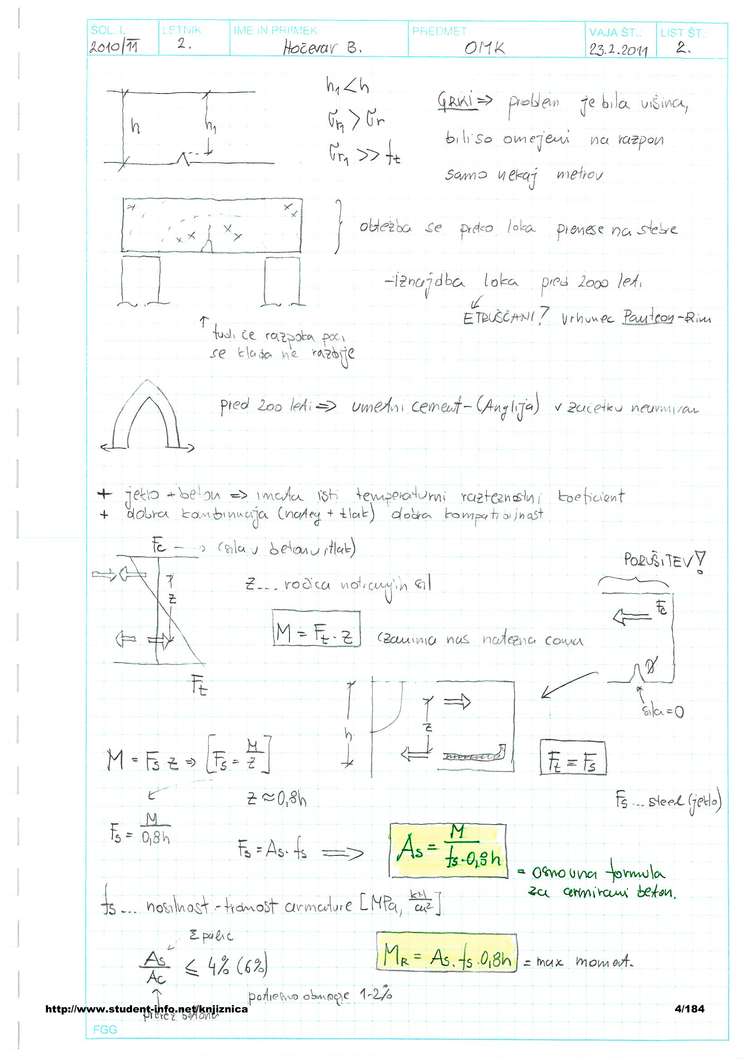 ŠOL. L. LETNIK IME IN PRIIMEK PREDMET VAJA ŠT.: LIST ŠT.:
2010/11 2. Hočevar B. OMK 23.2.2011 2.
h h₁
h₁ < h
σr₁ > σr
σr₁ >> ft
GRKI => problem je bila višina,
bili so omejeni na razpon
samo nekaj metrov
obtežba se preko loka prenese na stebre
- iznajdba loka pred 2000 leti
ETRUŠČANI? vrhunec Panteon - Rim
↑ tudi če razpoka poči
se klada ne razbije
pred 200 leti => umetni cement - (Anglija) v začetku nearmiran
+ jeklo + beton => imata isti temperaturni razteznostni koeficient
+ dobra kombinacija (nateg + tlak) dobra kompatibilnost
Fc → (sila v betonu, tlak)
z
Ft
z ... ročica notranjih sil
M = Ft · z (zanima nas natezna cona
PORUŠITEV!
Fc
sila = 0
h z
Ft = Fs
M = Fs z => [Fs = M/z]
Fs ... steel (jeklo)
Fs = M/0,8h
z ≈ 0,8h
Fs = As · fs =>
As = M/(fs · 0,8h)
= osnovna formula
za armirani beton.
fs ... nosilnost - trdnost armature [MPa, kN/cm²]
Σ palic
As/Ac ≤ 4% (6%)
MR = As · fs · 0,8h = max moment.
potrebno območje 1-2%
prerez betona
http://www.student-info.net/knjiznica 4/184
FGG